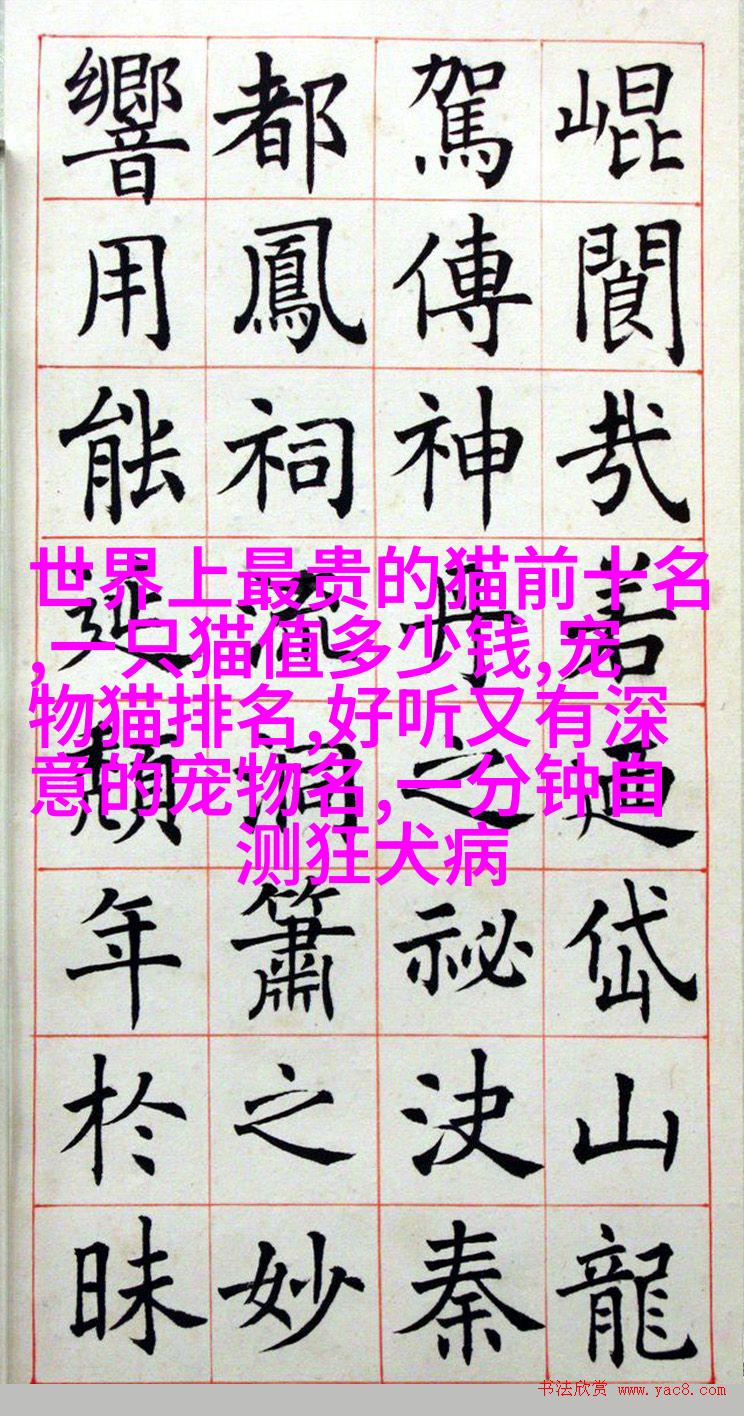 崐閬㦲若廼岱山龍
駕傳神丹之祕決秦
都鳳祠流洞簫之妙
響用能延頹年於昧
世界上最贵的猫前十名
,一只猫值多少钱,宠
物猫排名,好听又有深
意的宠物名,一分钟自
测狂犬病
书法欣赏 www.yac8.com